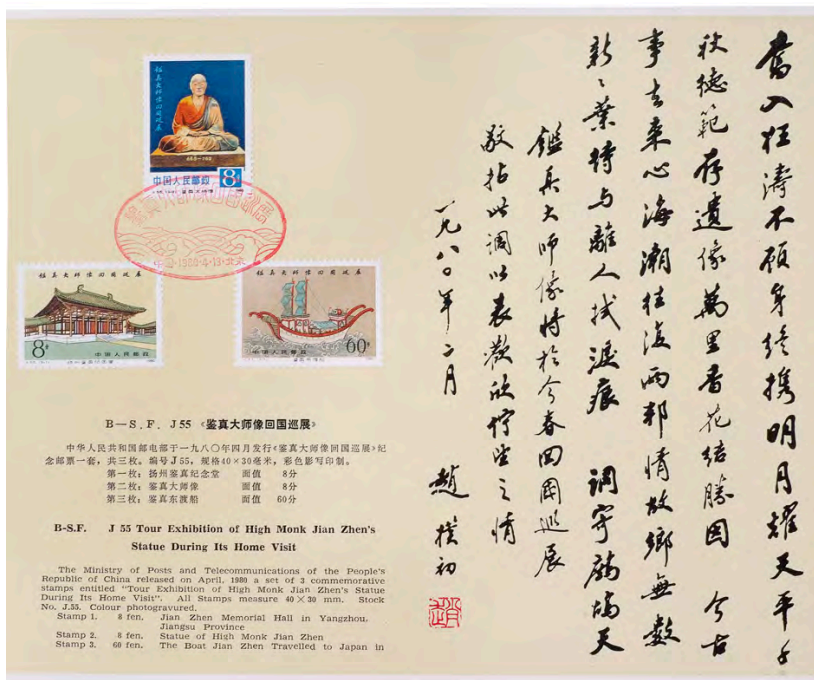 鑑真大师像回国巡展
688—763
中国人民邮政
8分
鑒真大師像回國巡展
中国·1980·4·13·北京
鑑真大师像回国巡展
8分
中国人民邮政
鑑真大师像回国巡展
中国人民邮政
60分
B—S.F. J55《鉴真大师像回国巡展》
中华人民共和国邮电部于一九八〇年四月发行《鉴真大师像回国巡展》纪
念邮票一套，共三枚。编号J55，规格40×30毫米，彩色影写印制。
第一枚：扬州鉴真纪念堂 面值 8分
第二枚：鉴真大师像 面值 8分
第三枚：鉴真东渡船 面值 60分
B-S.F. J 55 Tour Exhibition of High Monk Jian Zhen's
Statue During Its Home Visit
The Ministry of Posts and Telecommunications of the People's
Republic of China released on April, 1980 a set of 3 commemorative
stamps entitled "Tour Exhibition of High Monk Jian Zhen's Statue
During Its Home Visit". All Stamps measure 40×30 mm. Stock
No. J.55. Colour photogravured.
Stamp 1. 8 fen. Jian Zhen Memorial Hall in Yangzhou,
Jiangsu Province
Stamp 2. 8 fen. Statue of High Monk Jian Zhen
Stamp 3. 60 fen. The Boat Jian Zhen Travelled to Japan in
奮入狂濤不顧身終携明月耀天平千
秋德範存遺像萬里香花結勝因 今古
事去來心海潮往復兩邦情故鄉無數
新〻葉待與離人拭淚痕 調寄鷓鴣天
鑑真大師像將於今春回國巡展
敬拈此調以表歡欣佇望之情
一九八〇年二月 趙樸初